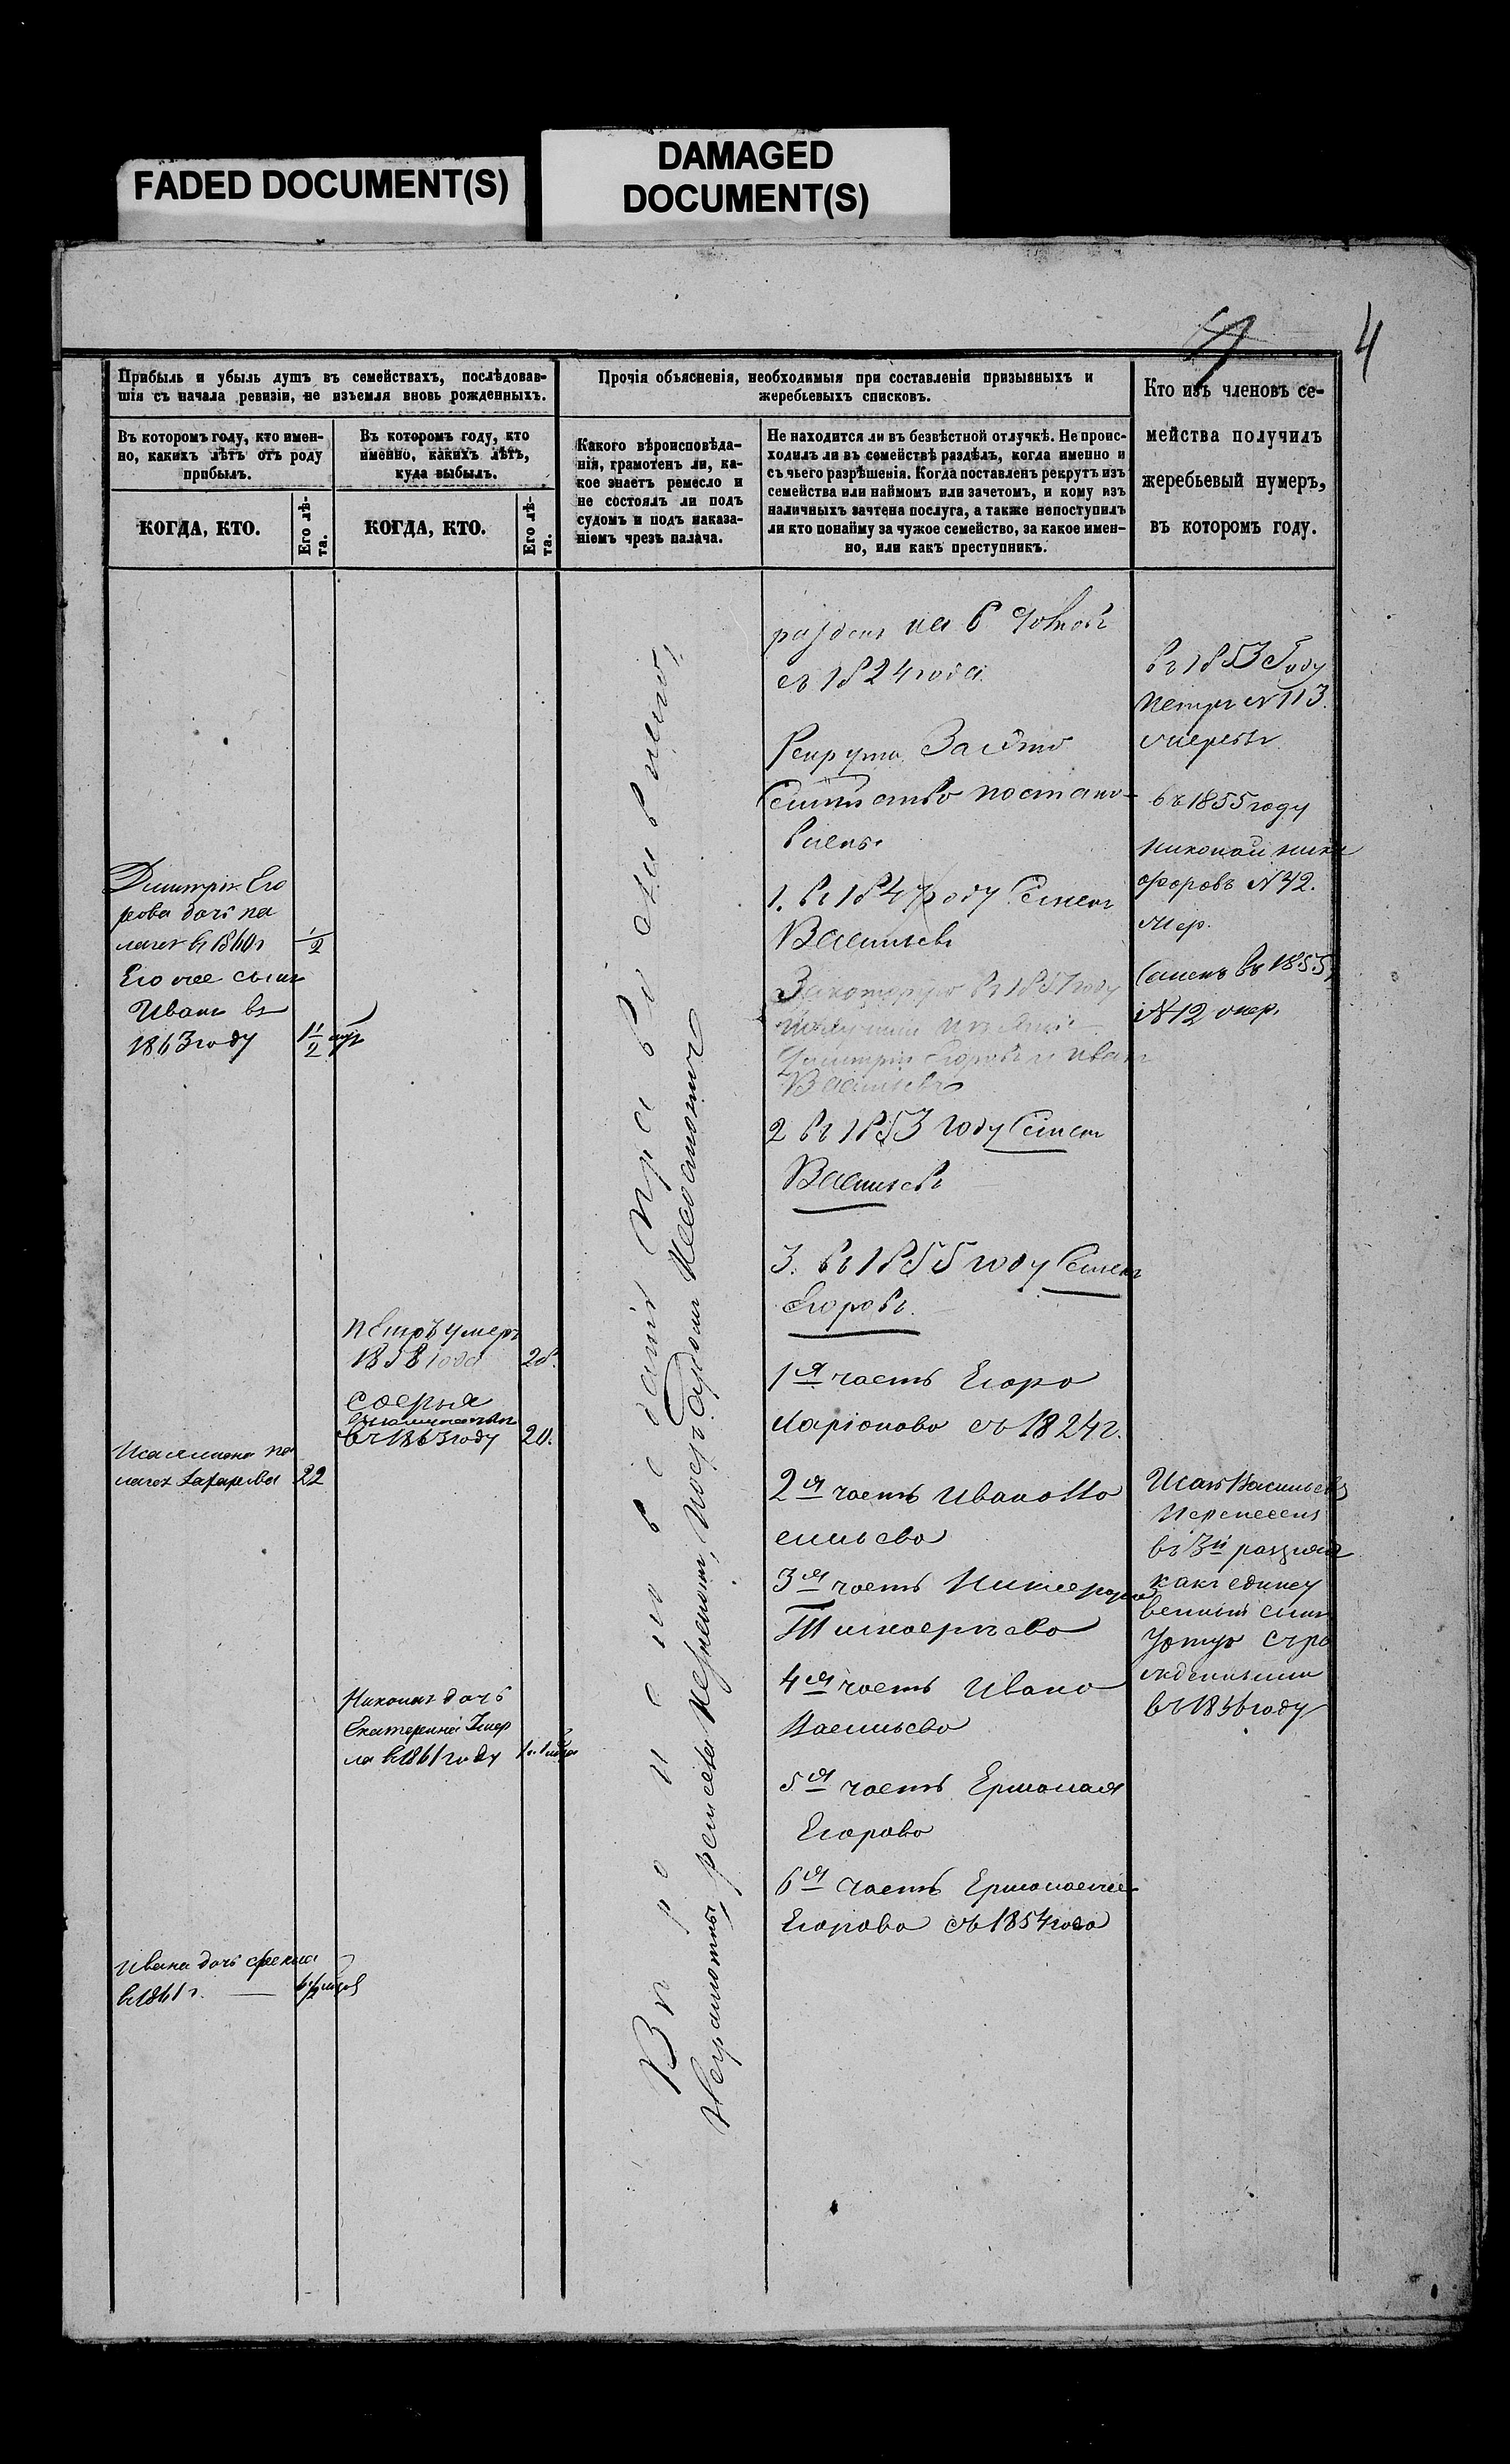 FADED DOCUMENT(S)
DAMAGED
DOCUMENT(S)
4
Прибыль и убыль душъ въ семействахъ, послѣдовав-
шія съ начала ревизіи, не изъемля вновь рожденныхъ.
Въ которомъ году, кто имен-
но, какихъ лѣтъ отъ роду
прибылъ.
КОГДА, КТО.
Его лѣ-
та.
Въ которомъ году, кто
именно, какихъ лѣтъ,
куда выбылъ.
КОГДА, КТО.
Его лѣ-
та.
Прочія объясненія, необходимыя при составленіи призывныхъ и
жеребьевыхъ списковъ.
Какого вѣроисповѣда-
нія, грамотенъ ли, ка-
кое знаетъ ремесло и
не состоялъ ли подъ
судомъ и подъ наказа-
ніемъ чрезъ палача.
Не находится ли въ безвѣстной отлучкѣ. Не проис-
ходилъ ли въ семействѣ раздѣлъ, когда именно и
съ чьего разрѣшенія. Когда поставленъ рекрутъ изъ
семейства или наймомъ или зачетомъ, и кому изъ
наличныхъ зачтена послуга, а также непоступилъ
ли кто понайму за чужое семейство, за какое имен-
но, или какъ преступникъ.
Кто изъ членовъ се-
мейства получилъ
жеребьевый нумеръ,
въ которомъ году.
Димитрія Его
рова дочь пе
лагея въ 1860г
1/2
Его же сынъ
Иванъ въ
1863 году
1 1/2
Пелагея Лазарева 22
Ивана дочь
въ 1861 г.
Петръ умеръ
1858 года 28.
Софья
въ 1863 году 20.
Николая дочь
Екатерина умер
ла въ 1861 году
Вѣроисповѣданія Православнаго,
Неграмотны, ремесла незнаютъ, подъ Судомъ Несостоятъ
на 6
съ 1824 года
Рекрутъ За это
Семейство постано-
влено
1. въ 1847 году Семенъ
Васильевъ
въ 1857 году
Димитрій Егоровъ и Иванъ
Васильевъ
2 въ 1853 году Семенъ
Васильевъ
3. въ 1855 году Семенъ
Егоровъ.
1я часть Егора
Ларіонова съ 1824г.
2я часть Ивана Ва
сильева
3я часть Никифора
Тимофеева
4я часть Ивана
Васильева
5я часть Ермолая
Егорова
6я часть Ермолаева
Егорова съ 1854 года
въ 1853 Году
Петръ N 113.
жеребья
въ 1855 году
Николай Ники
форовъ N 42.
жер.
Семенъ въ 1855г
N 12 жер.
Исай Васильевъ
Перенесенъ
въ 3й разрядъ
какъ единст
венный сынъ
въ 1856 году